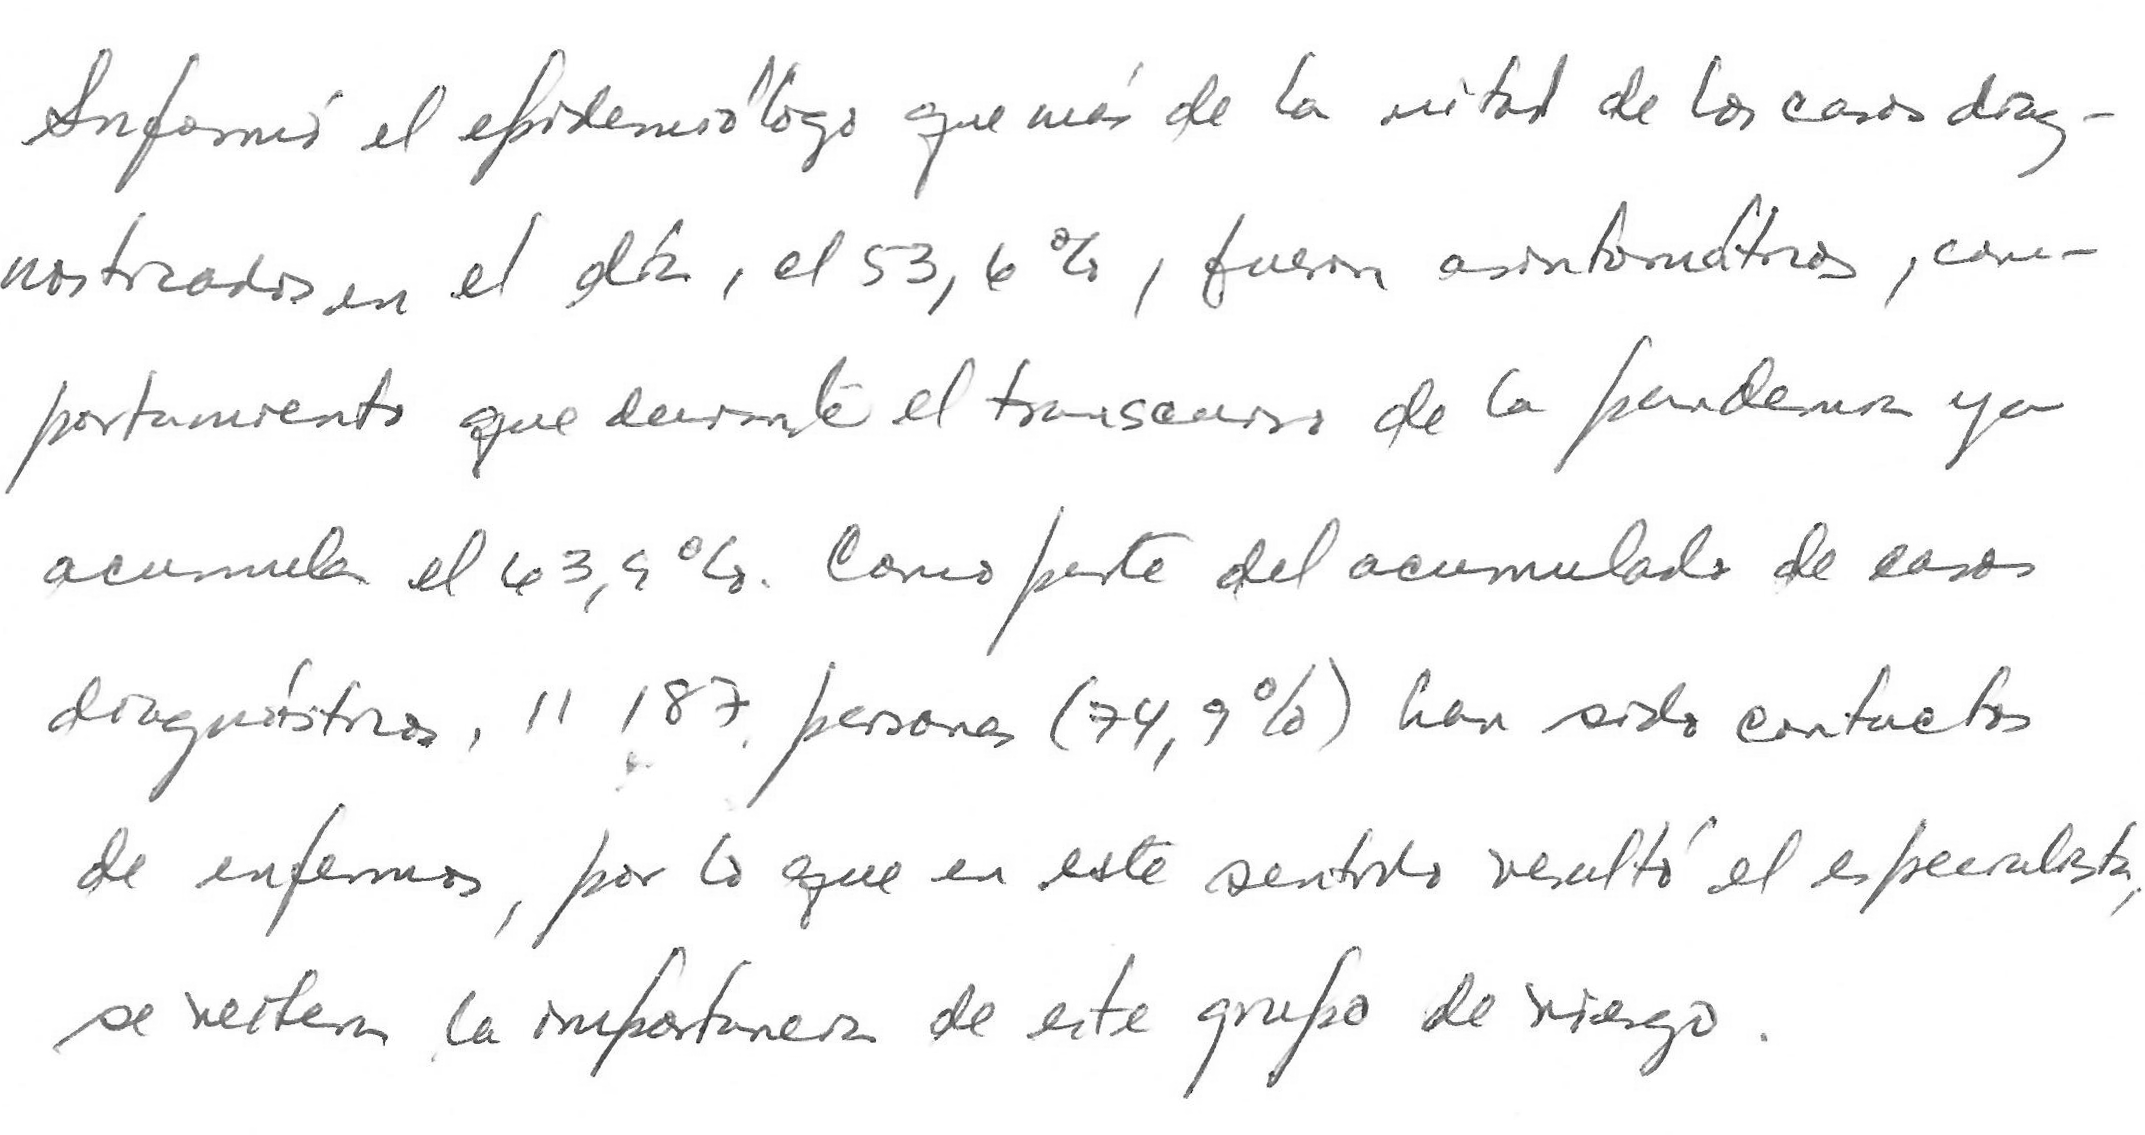 Informó el epidemiólogo que más de la mitad de los casos diag-
nosticados en el día, el 53,6%, fueron asintomáticos, com-
portamiento que durante el transcurso de la pandemia ya
acumula el 63,9%. Como parte del acumulado de casos
diagnósticos, 11 187 personas (74,9%) han sido contactos
de enfermos, por lo que en este sentido resultó el especialista,
se reitera la importancia de este grupo de riesgo.